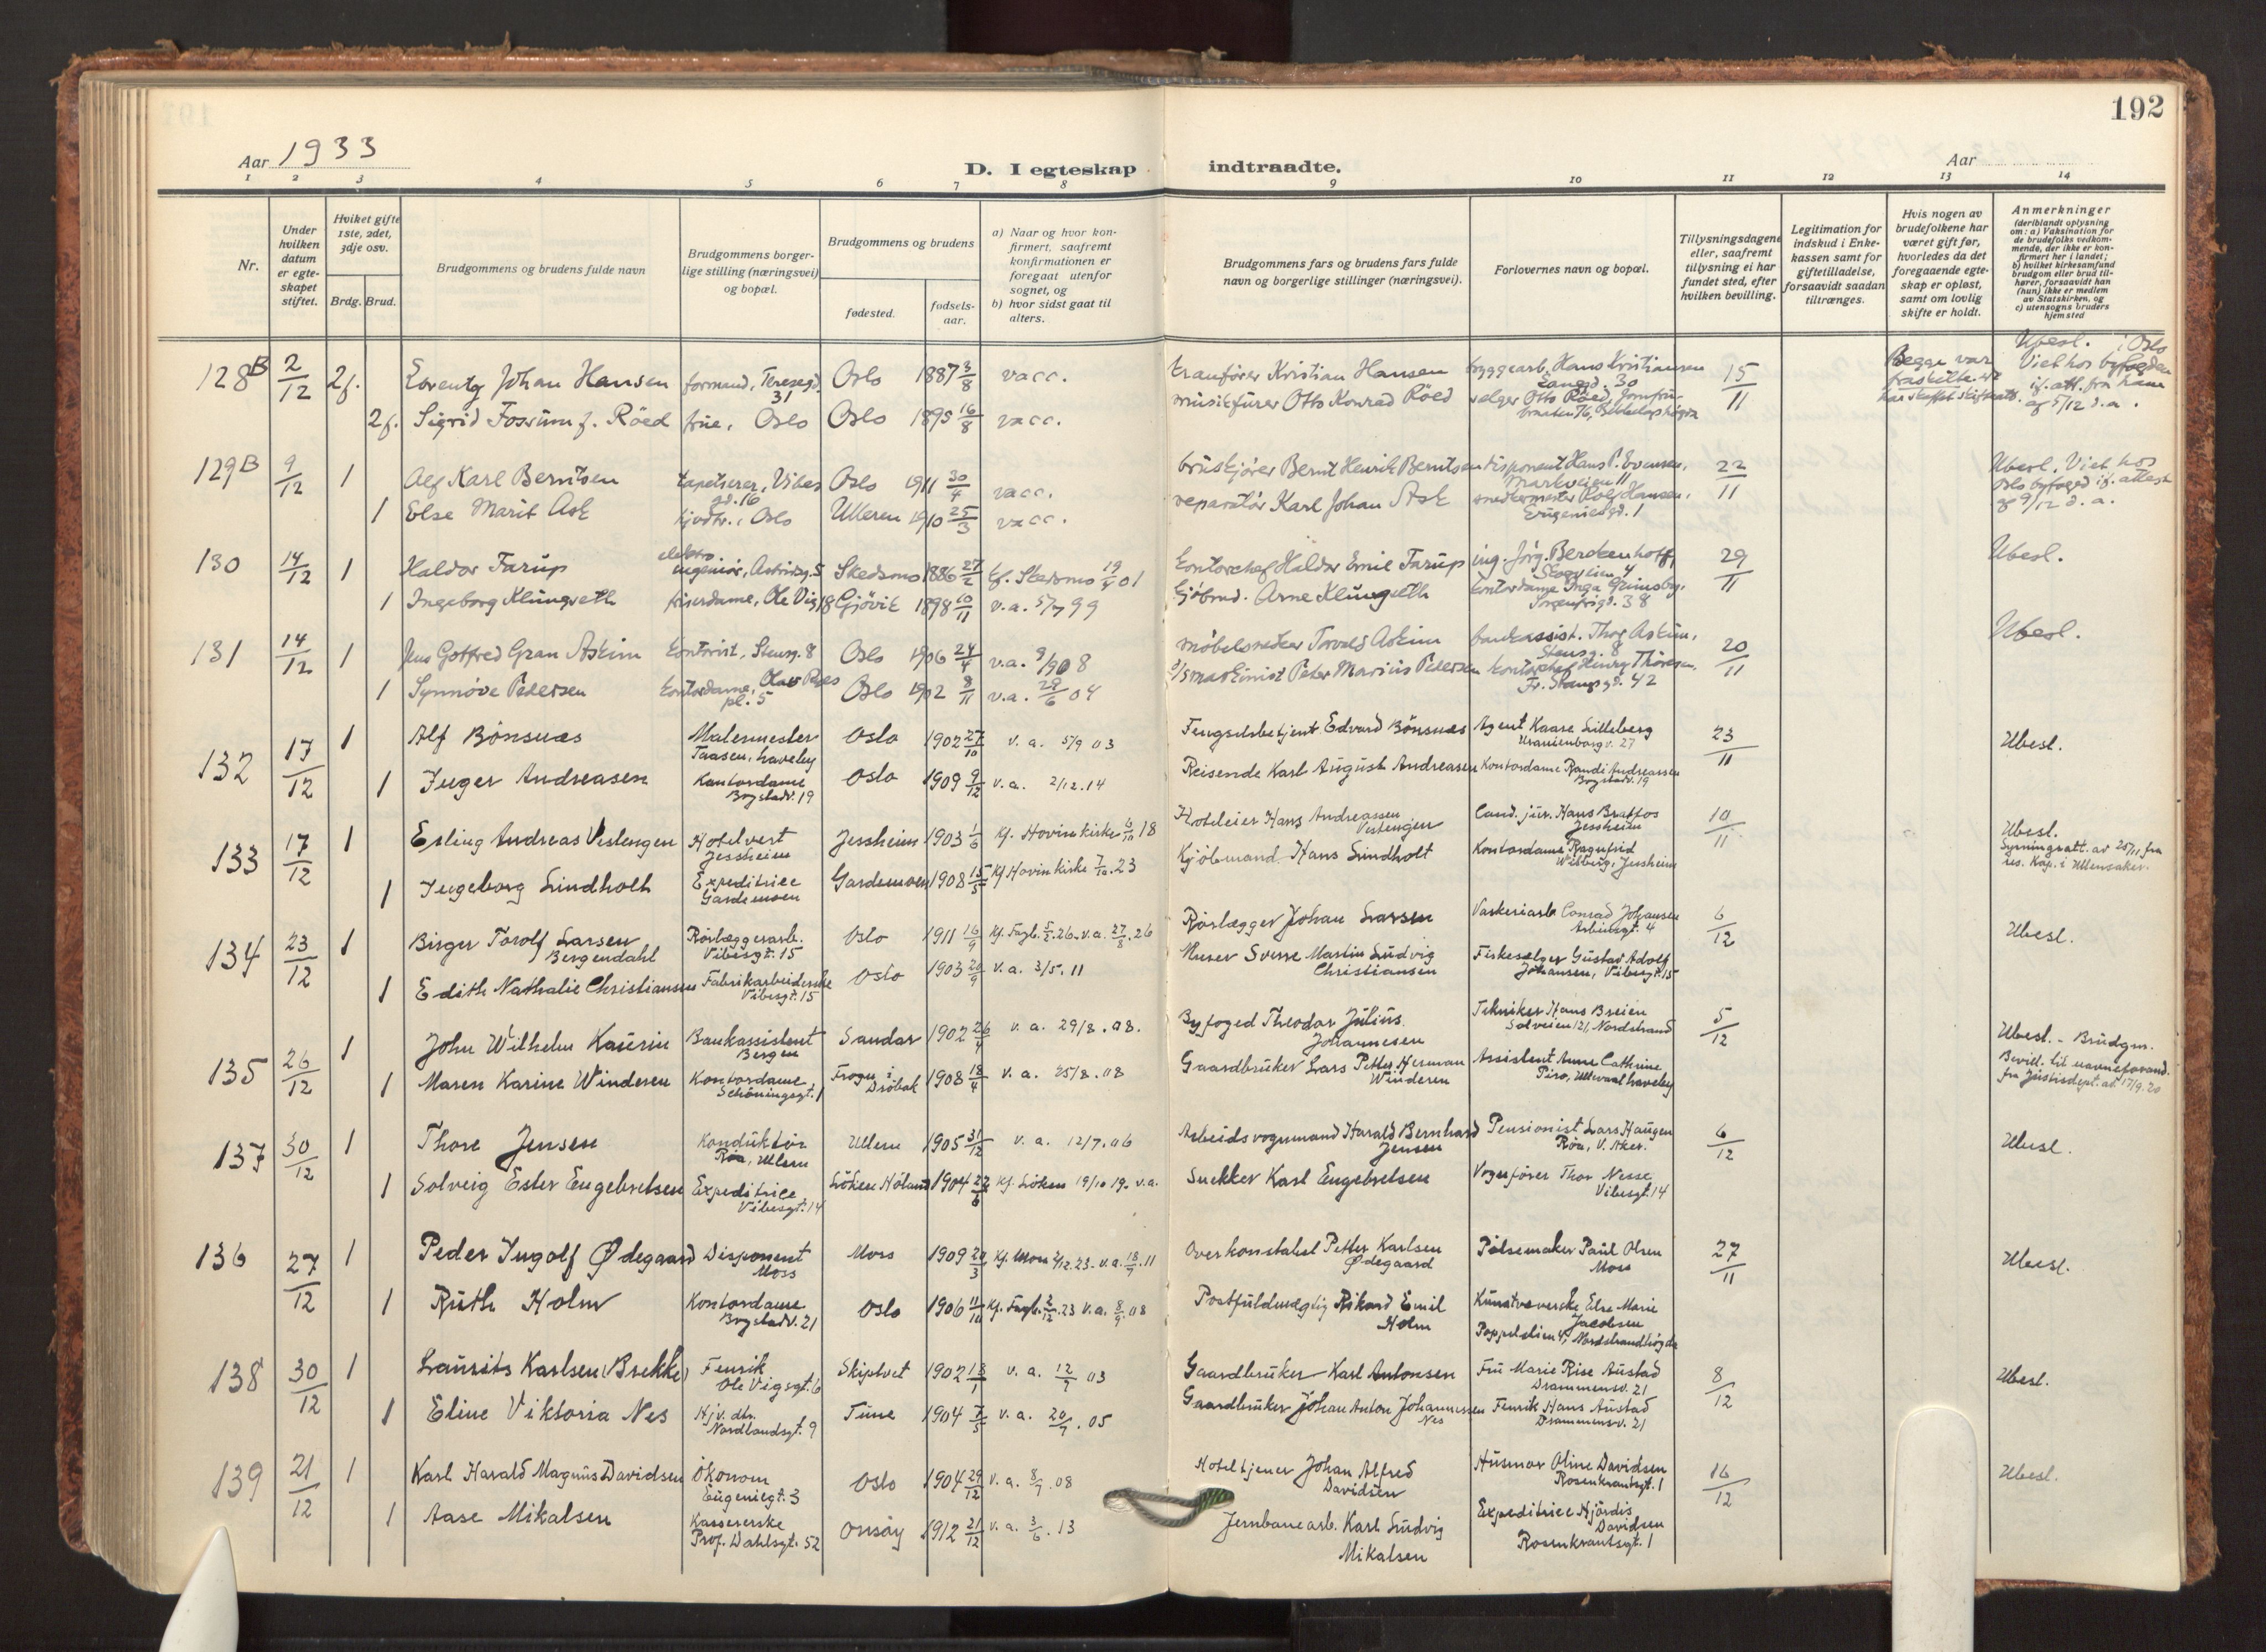 192
Aar 1933
D. I egteskap indtraadte.
Aar
1 2 3 4 5 6 7 8 9 10 11 12 13 14
Nr.
Under hvilken datum er egteskapet stiftet.
Hvilket gifte 1ste, 2det, 3dje osv.
Brdg. Brud.
Brudgommens og brudens fulde navn
Brudgommens borgerlige stilling (næringsvei) og bopæl.
Brudgommens og brudens
fødested.
fødselsaar.
a) Naar og hvor konfirmert, saafremt konfirmationen er foregaat utenfor sognet, og
b) hvor sidst gaat til alters.
Brudgommens fars og brudens fars fulde navn og borgerlige stillinger (næringsvei).
Forlovernes navn og bopæl.
Tillysningsdagene eller, saafremt tillysning ei har fundet sted, efter hvilken bevilling.
Legitimation for indskud i Enkekassen samt for giftetilladelse, forsaavidt saadan tiltrænges.
Hvis nogen av brudefolkene har været gift før, hvorledes da det foregaaende egteskap er opløst, samt om lovlig skifte er holdt.
Anmerkninger
(deriblandt oplysning om: a) Vaksination for de brudefolks vedkommende, der ikke er konfirmert her i landet; b) hvilket kirkesamfund brudgom eller brud tilhører, forsaavidt han (hun) ikke er medlem av Statskirken, og c) utensogns bruders hjemsted
128B 2/12 2f. Johan Hansen formand, Teresegd. 31 Oslo 1887 3/8 vacc. Kristian Hansen bryggearb. Hans Kristiansen 30 15/11 Begge var fraskilte Ubesl. Viet hos byfogden i Oslo if. att. fra ham af 5/12 d.a.
2f. Sigrid Fossum f. Röed frue, Oslo Oslo 1895 16/8 vacc. Otto Konrad Röed selger Otto Röed,
129B 9/12 1 Alf Karl Berntsen tapetserer, Vibes gd. 16 Oslo 1911 30/4 vacc. bruskjører Bernt Henrik Berntsen disponent Hans P. Evensen, Markveien 11 22/11 Ubesl. Viet hos Oslo byfoged if. attest af 9/12 d.a.
1 Else Marit Ask hjvdtr., Oslo Ulleren 1910 25/3 vacc. reparatör Karl Johan Ask smedkermester Rolf Hansen, Eugeniesgd. 1
130 14/12 1 Haldor Farup elektro ingeniör, 5 Skedsmo 1886 27/2 kf. Skedsmo 01 kontorchef Haldor Emil Farup ing. Jörg. Berckenhoff, Skogveien 4 29/11 Ubesl.
1 Ingeborg Klungseth frisérdame, Ole Vig 18 Gjövik 1898 10/11 v.a. 5/7 99 kjöbmd. Arne Klungseth kontordame Inga Grimsby, Sorgenfrigd. 38
131 14/12 1 Jens Gotfred Gran Askim kontorist, Stensg. 8 Oslo 1906 24/4 v.a. 08 möbelsnedker Torvald Askim bankassist. Thor Askim, Stensg. 8 20/11 Ubesl.
1 Synnöve Pedersen kontordame, Olav Ryes pl. 5 Oslo 1902 8/11 v.a. 29/6 04 maskinist Peter Marius Pedersen kontorchef Henry Thöresen, Fr. Stangsgd. 42
132 17/12 1 Alf Bönsnæs Malermester Taasen, haveby Oslo 1902 27/10 v. a. 5/9 03 Fengselsbetjent Edvard Bönsnæs Agent Kaare Lilleberg Uranienborgv. 27 23/11 Ubesl.
1 Inger Andreasen Kontordame Bogstadv. 19 Oslo 1909 9/12 v. a. 2/12.14 Reisende Karl August Andreasen Kontordame Randi Andreassen Bogstadv. 19
133 17/12 1 Erling Andreas Vestengen Hotelvert Jessheim Jessheim 1903 1/6 kf. Hovin kirke 6/10 18 Hoteleier Hans Andreassen Vestengen Cand. jur. Hans Brattfos Jessheim 10/11 Ubesl. Lysningsatt. av 25/11 fra res. Kap. i Ullensaker.
1 Ingeborg Lindholt Expeditrice Gardemoen Gardemoen 1908 15/5 kf Hovin kirke 7/10.23 Kjöbmand Hans Lindholt Kontordame Ragnfrid Wilberg, Jessheim
134 23/12 1 Birger Torolf Larsen Bergendahl Rörlæggerarb. Vibesgt. 15 Oslo 1911 16/9 kf. Fagb. 5/2.26. v.a. 27/8.26 Rörlægger Johan Larsen Vaskeriarb. Conrad Johansen Arbinsgt. 4 6/12 Ubesl.
1 Edith Nathalie Christiansen Fabrikarbeiderske Vibesgt. 15 Oslo 1903 20/9 v. a. 3/5. 11 Murer Sverre Martin Ludvig Christiansen Fiskesælger Gustav Adolf Johansen, Vibesgt. 15
135 26/12 1 John Wilhelm Kaurin Bankassistent Bergen Sandar 1902 26/4 v. a. 29/8. 08. Byfoged Theodor Julius Johannesen Tekniker Hans Breien Solveien 121, Nordstrand 5/12 Ubesl. - Brudgm. Bevill. til navneforand. fra Justisdept. av 17/9.20
1 Maren Karine Winderen Kontordame Schöningsgt. 1 Frogn i Dröbak 1908 18/4 v. a. 25/8. 08 Gaardbruker Lars Petter Herman Winderen Assistent Anne Cathrine Piro, Ullevaal haveby
137 30/12 1 Thore Jensen Konduktör Röa, Ullern Ullern 1905 31/12 v. a. 12/7. 06 Arbeidsvognmand Harald Bernhard Jensen Pensionist Lars Haugen Röa, V. Aker. 6/12 Ubesl.
1 Solveig Ester Engebretsen Expeditrice Vibesgt. 14 Löken Höland 1904 22/6 kf. Löken 19/10 19. v.a. Snekker Karl Engebretsen Vognförer Thor Nesse Vibesgt. 14
136 27/12 1 Peder Ingolf Ødegaard Disponent Moss Moss 1909 20/3 kf. Moss 2/12.23. v.a. 18/7. 11 Overkonstabel Petter Karlsen Ødegaard Pölsemaker Paul Olsen Moss 27/11 Ubesl.
1 Ruth Holm Kontordame Bogstadv. 21 Oslo 1906 11/10 kf. Fagb. 2/12.23 v.a. 8/9.08 Postfuldmægtig Rikard Emil Holm Kunstvæverske Else Marie Jacobsen Poppelalien 4, Nordstrandhögda
138 30/12 1 Laurits Karlsen (Brekke) Fenrik Ole Vigsgt. 6 Skiptvet 1902 18/1 v. a. 12/7 03 Gaardbruker Karl Antonsen Fru Marie Rise Austad Drammensv. 21 8/12 Ubesl.
1 Eline Viktoria Nes Hjv. dtr. Nordlandsgt. 9 Tune 1904 7/5 v. a. 20/7. 05 Gaardbruker Johan Anton Johannessen Nes Fenrik Hans Austad Drammensv. 21
139 21/12 1 Karl Harald Magnus Davidsen Ökonom Eugeniegt. 3 Oslo 1904 29/12 v. a. 8/7. 08 Hoteltjener Johan Alfred Davidsen Husmor Oline Davidsen Rosenkrantsgt. 1 16/12 Ubesl.
1 Aase Mikalsen Kassererske Prof. Dahlsgt. 52 Onsöy 1912 21/12 v. a. 3/6. 13 Jernbanearb. Karl Ludvig Mikalsen Expeditrice Hjördis Davidsen Rosenkrantsgt. 1